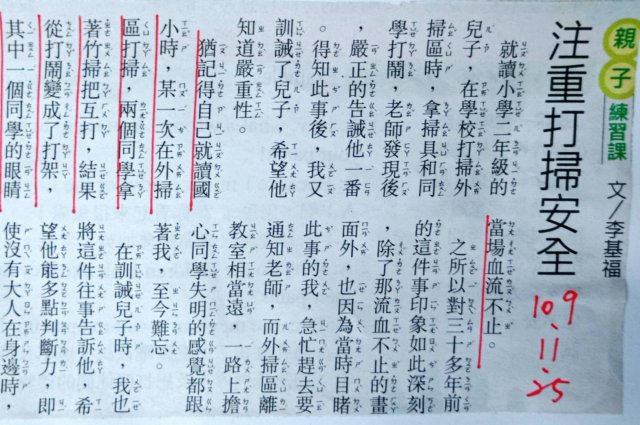 親子練習課
注重打掃安全
文/李基福
109.11.25
就讀小學二年級的
兒子,在學校打掃外
掃區時,拿掃具和同
學打鬧,老師發現後
,嚴正的告誡他一番
。得知此事後,我又
訓誡了兒子,希望他
知道嚴重性。
猶記得自己就讀國
小時,某一次在外掃
區打掃,兩個同學拿
著竹掃把互打,結果
從打鬧變成了打架,
其中一個同學的眼睛
當場血流不止。
之所以對三十多年前
的這件事印象如此深刻
,除了那流血不止的畫
面外,也因為當時目睹
此事的我,急忙趕去要
通知老師,而外掃區離
教室相當遠,一路上擔
心同學失明的感覺都跟
著我,至今難忘。
在訓誡兒子時,我也
將這件往事告訴他,希
望他能多點判斷力,即
使沒有大人在身邊時,